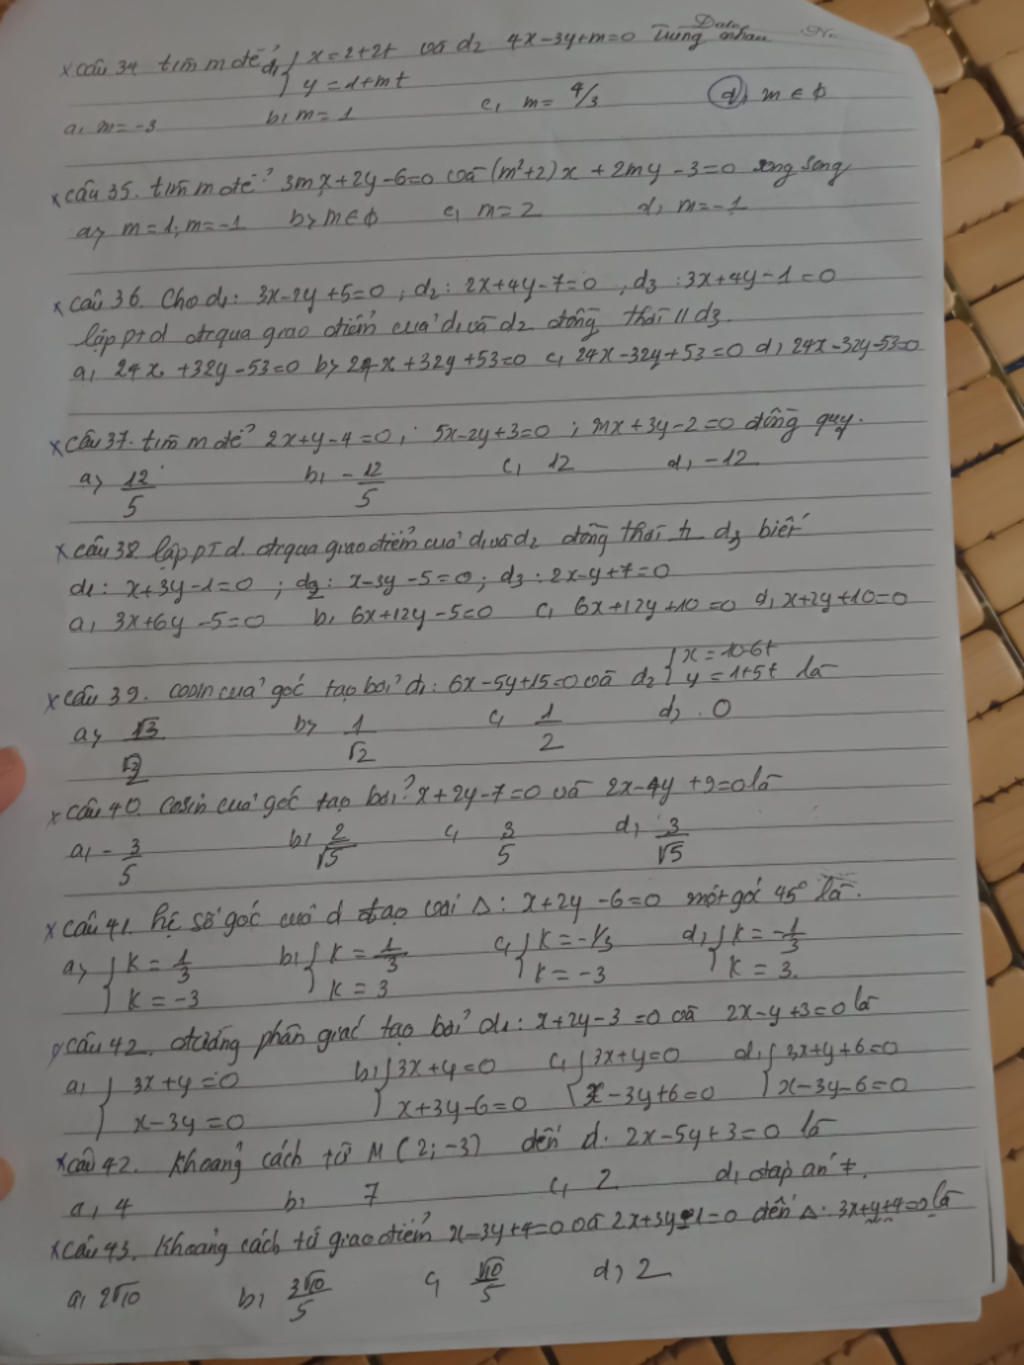 Date No.
x câu 34 tìm m để d₁ { x = 2+2t và d₂ 4x-3y+m=0 trùng nhau
y = 1+mt
a, m = -3 b, m = 1 c, m = 4/3 d, m ∈ ϕ
x câu 35. tìm m để 3mx+2y-6=0 và (m²+2)x + 2my - 3=0 song song
a, m = 1; m = -1 b, m ∈ ϕ c, m = 2 d, m = -1
x câu 36. Cho d₁: 3x-2y+5=0; d₂: 2x+4y-7=0, d₃: 3x+4y-1=0
lập pt d đt qua giao điểm của d₁ và d₂ đồng thời // d₃.
a, 24x+32y-53=0 b, 24x+32y+53=0 c, 24x-32y+53=0 d, 24x-32y-53=0
x câu 37. tìm m để 2x+y-4=0; 5x-2y+3=0; mx+3y-2=0 đồng quy.
a, 12/5 b, -12/5 c, 12 d, -12
x câu 38. lập pT d. đt qua giao điểm của d₁ và d₂ đồng thời d₃ biết
d₁: x+3y-1=0; d₂: x-3y-5=0; d₃: 2x-y+7=0
a, 3x+6y-5=0 b, 6x+12y-5=0 c, 6x+12y+10=0 d, x+2y+10=0
x câu 39. cosin của góc tạo bởi d₁: 6x-5y+15=0 và d₂ { x = 10-6t
y = 1+5t là
a, √3/√2 b, 1/√2 c, 1/2 d, 0
x câu 40. Cosin của góc tạo bởi x+2y-7=0 và 2x-4y+9=0 là
a, -3/5 b, 2/√5 c, 3/5 d, 3/√5
x câu 41. hệ số góc của d tạo với Δ: x+2y-6=0 một góc 45° là.
a, { k = 1/3 b, { k = 1/3 c, { k = -1/3 d, { k = -1/3
k = -3 k = 3 k = -3 k = 3.
câu 42. đường phân giác tạo bởi d₁: x+2y-3=0 và 2x-y+3=0 là
a, { 3x+y=0 b, { 3x+y=0 c, { 3x+y=0 d, { 3x+y+6=0
x-3y=0 x+3y-6=0 x-3y+6=0 x-3y-6=0
x câu 42. Khoảng cách từ M(2;-3) đến d: 2x-5y+3=0 là
a, 4 b, 7 c, 2 d, đáp án ≠.
x câu 43. Khoảng cách từ giao điểm x-3y+4=0 và 2x+3y-1=0 đến Δ: 3x+y+4=0 là
a, 2√10 b, 3√10/5 c, √10/5 d, 2